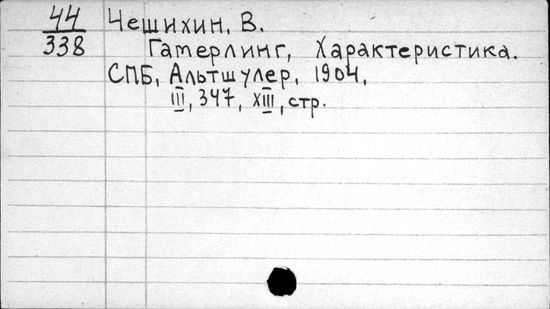 44 Чешихин, В.
338 Гамерлинг, Характеристика.
СПБ, Альтшулер, 1904,
III, 347, XIII, стр.